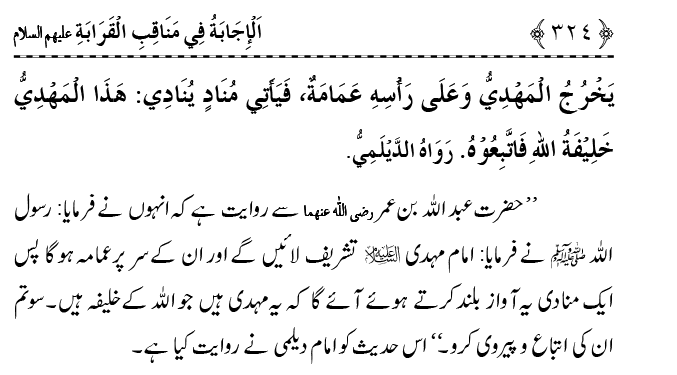 ﴿٣٢٤﴾ اَلْإِجَابَةُ فِي مَنَاقِبِ الْقَرَابَةِ علیہم السلام
يَخْرُجُ الْمَهْدِيُّ وَعَلَى رَأْسِهِ عَمَامَةٌ، فَيَأْتِي مُنَادٍ يُنَادِي: هَذَا الْمَهْدِيُّ
خَلِيْفَةُ اللهِ فَاتَّبِعُوْهُ. رَوَاهُ الدَّيْلَمِيُّ.
’’حضرت عبد اللہ بن عمر رضی اللہ عنہما سے روایت ہے کہ انہوں نے فرمایا: رسول
اللہ ﷺ نے فرمایا: امام مہدی علیہ السلام تشریف لائیں گے اور ان کے سر پر عمامہ ہو گا پس
ایک منادی یہ آواز بلند کرتے ہوئے آئے گا کہ یہ مہدی ہیں جو اللہ کے خلیفہ ہیں۔ سو تم
ان کی اتباع و پیروی کرو۔‘‘ اس حدیث کو امام دیلمی نے روایت کیا ہے۔